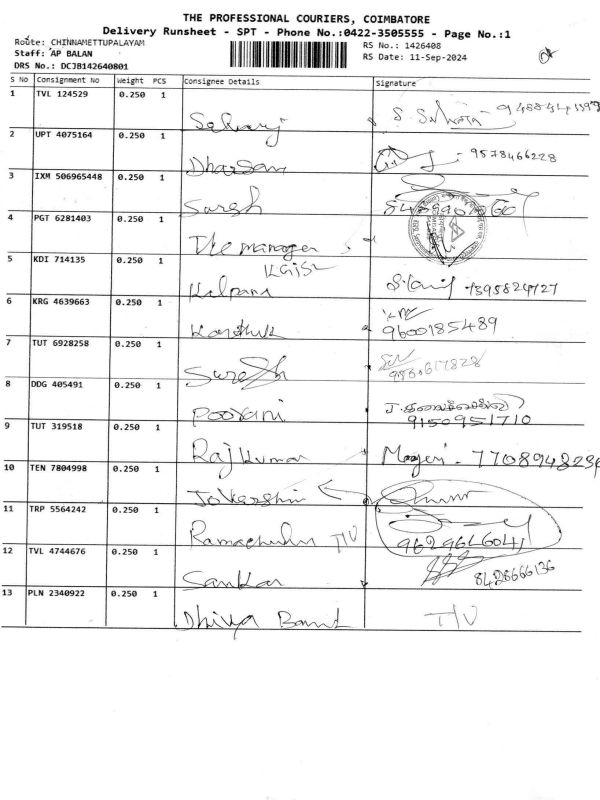 THE PROFESSIONAL COURIERS, COIMBATORE
Delivery Runsheet - SPT - Phone No.:0422-3505555 - Page No.:1
Route: CHINNAMETTUPALAYAM
RS No.: 1426408
Staff: AP BALAN
RS Date: 11-Sep-2024
DRS No.: DCJB142640801
S No Consignment No Weight PCS Consignee Details Signature
1 TVL 124529 0.250 1
2 UPT 4075164 0.250 1 Dharsan 9578466228
3 IXM 506965448 0.250 1 Suresh
4 PGT 6281403 0.250 1 The manager
KGISL
5 KDI 714135 0.250 1 Kalpana
6 KRG 4639663 0.250 1 Karthik 9600185489
7 TUT 6928258 0.250 1 Suresh
8 DDG 405491 0.250 1 Pooyani 9150951710
9 TUT 319518 0.250 1 Rajkumar
10 TEN 7804998 0.250 1
11 TRP 5564242 0.250 1 T/V 9629646041
12 TVL 4744676 0.250 1 Sankar 8428666136
13 PLN 2340922 0.250 1 Dhivya T/V